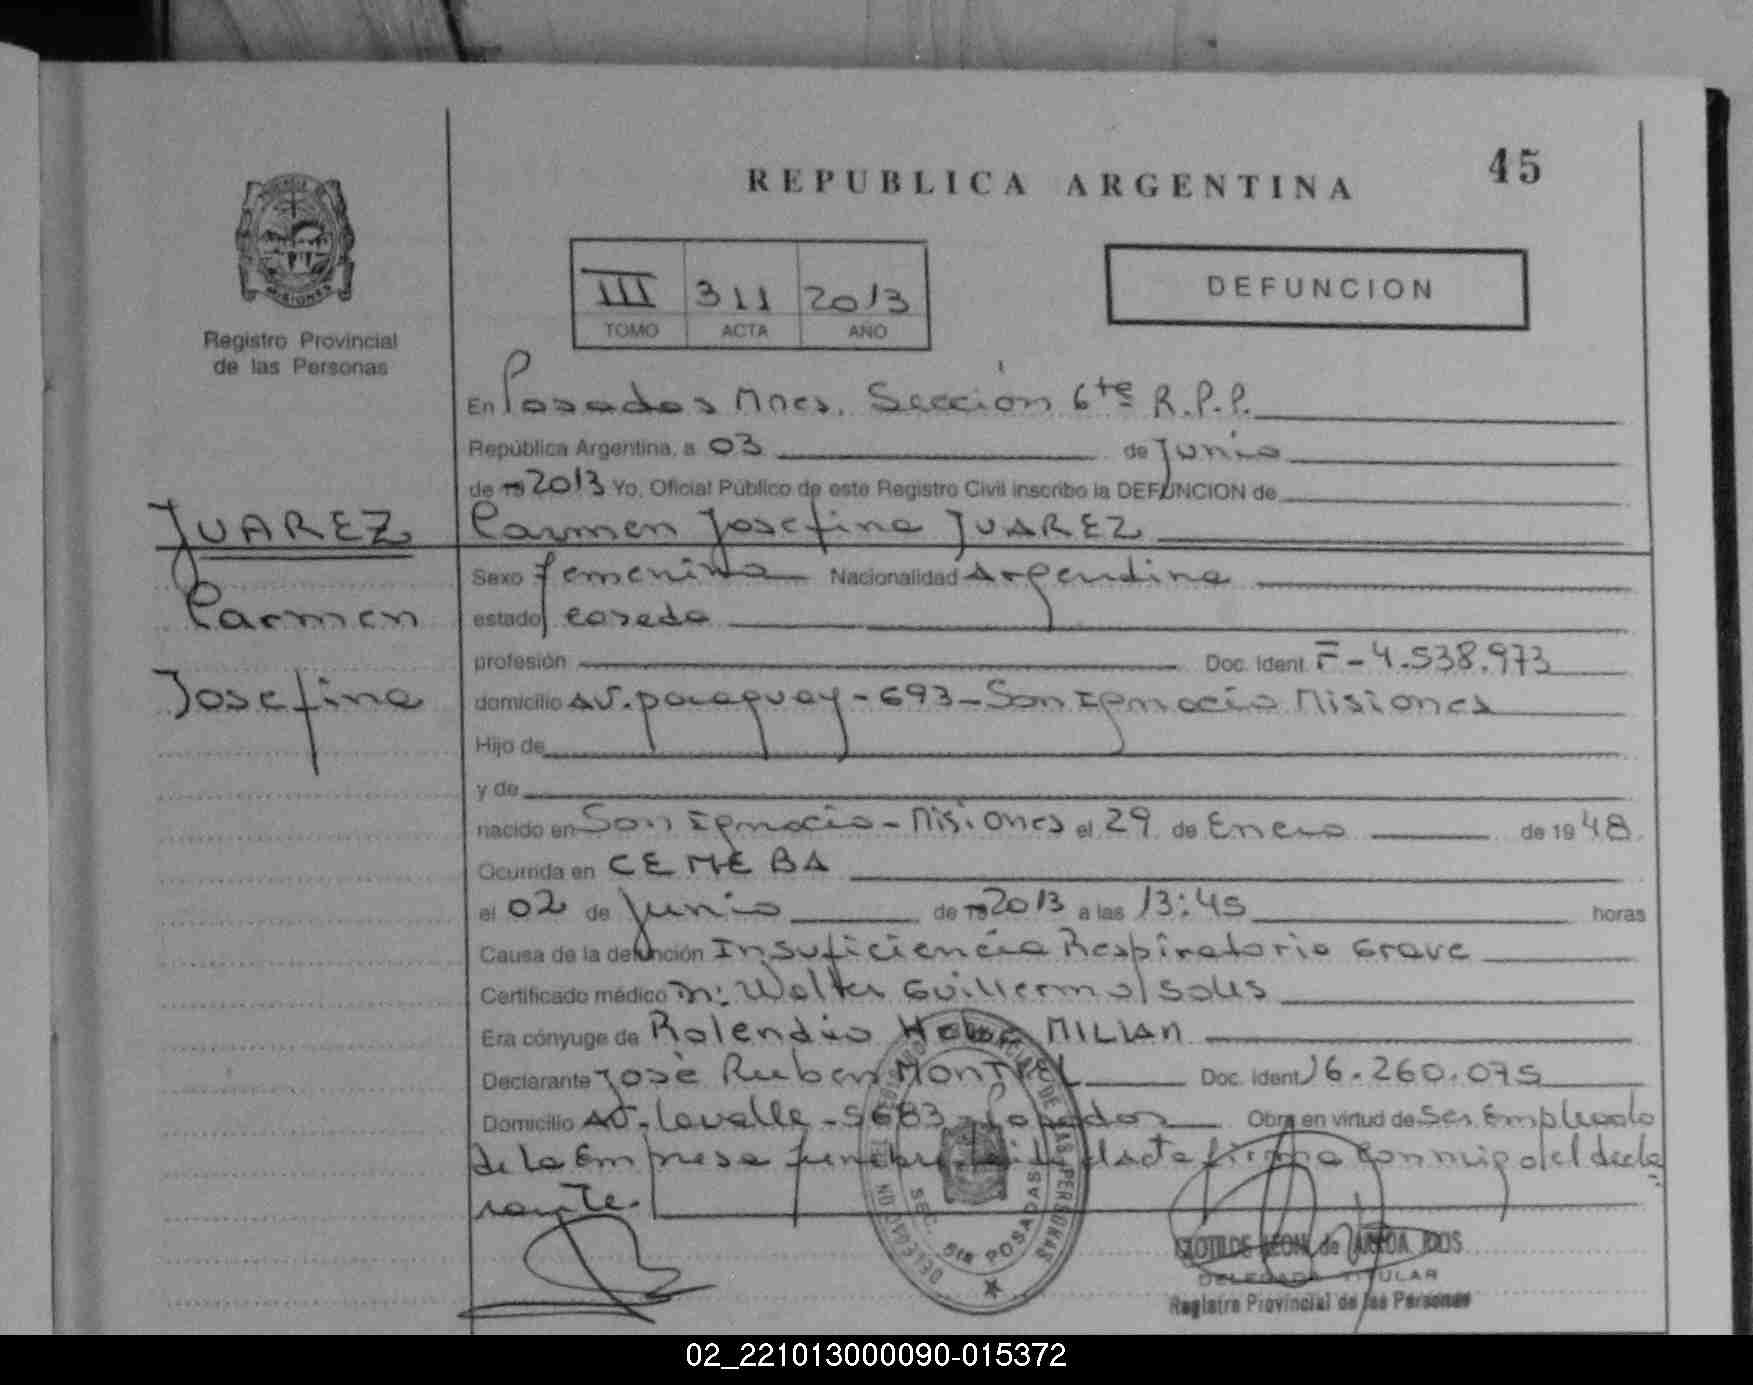 REPUBLICA ARGENTINA
45
MISIONES
Registro Provincial
de las Personas
III 311 2013
TOMO ACTA AÑO
DEFUNCION
En Posadas Mnes. Sección 6ta R.P.P.
República Argentina, a 03 de Junio
de 19 2013 Yo, Oficial Público de este Registro Civil inscribo la DEFUNCION de
JUAREZ
Carmen
Josefina
Carmen Josefina JUAREZ
Sexo femenino Nacionalidad Argentina
estado casada
profesión Doc. Ident. F-4.538.973
domicilio Av. paraguay-693-San Ignacio Misiones
Hijo de
y de
nacido en San Ignacio-Misiones el 29 de Enero de 1948
Ocurrida en CEMEBA
el 02 de Junio de 19 2013 a las 13:45 horas
Causa de la defunción Insuficiencia Respiratoria Grave
Certificado médico Dr: Walter Guillermo Solis
Era cónyuge de MILIAN
Declarante José Ruben MONTIEL Doc. Ident 16.260.075
Domicilio Av. Lavalle-5683-Posadas Obra en virtud de Ser Empleado
de la Empresa funebre acta firma conmigo el decla
rante.
SEC. 6ta POSADAS
CLOTILDE LEONI de
DELEGADA TITULAR
Registro Provincial de las Personas
02_221013000090-015372